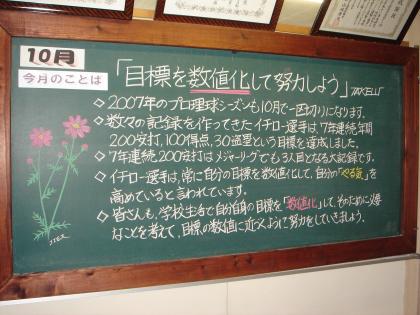 10月
今月のことば
「目標を数値化して努力しよう」TAKEUTI
◇2007年のプロ野球シーズンも10月で一区切りになります。
◇数々の記録を作ってきたイチロー選手は、7年連続年間
200安打、100得点、30盗塁という目標を達成しました。
◇7年連続200安打はメジャーリーグでも3人目となる大記録です。
◇イチロー選手は、常に自分の目標を数値化して、自分の「やる気」を
高めていると言われています。
◇皆さんも、学校生活で自分自身の目標を「数値化」して、そのために必要
なことを考えて、目標の数値に近づくように努力をしていきましょう。